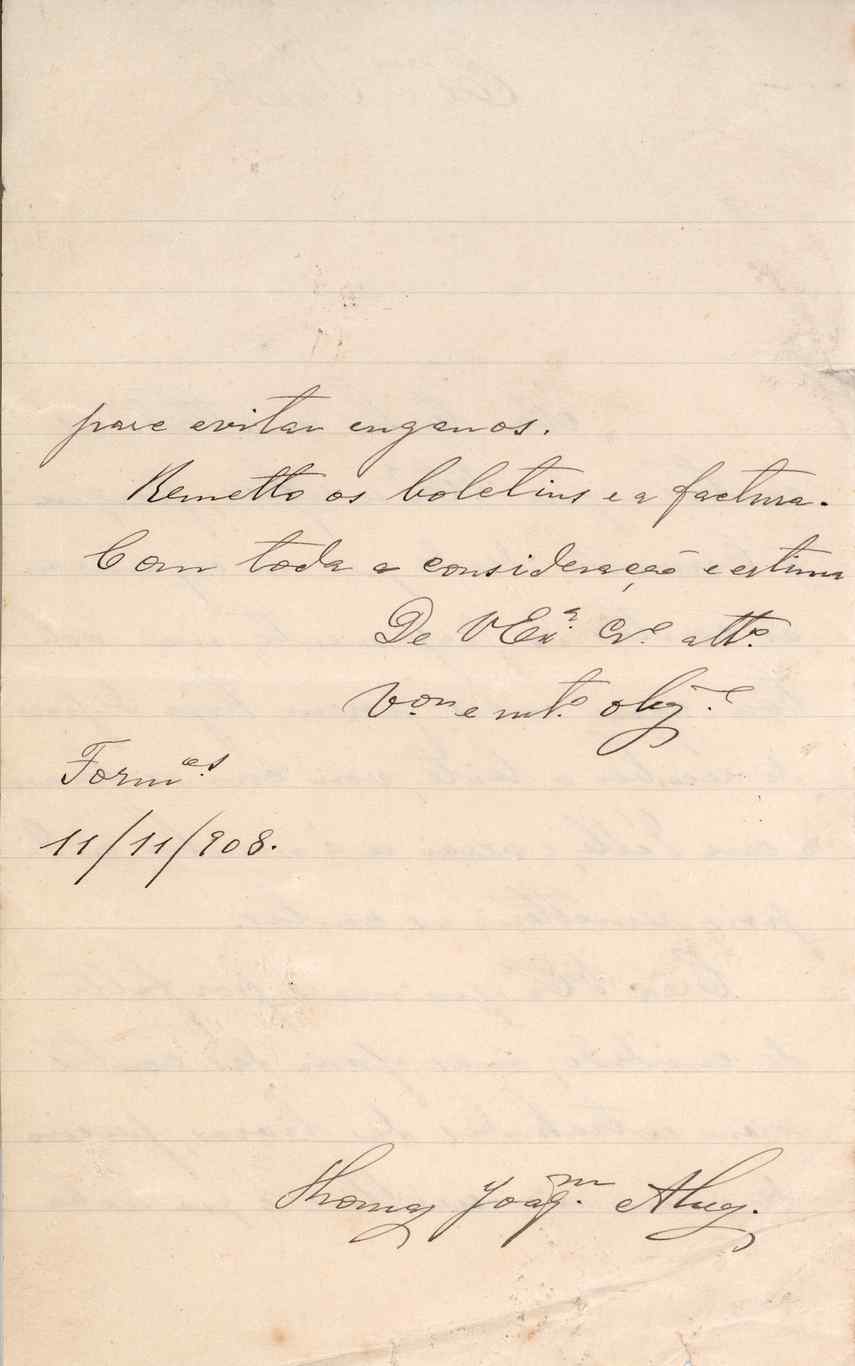 para evitar enganos.
Remetto os boletins e a factura.
Com toda a consideração e estima
De V Exª Crº attº
Vºr e mtº obgº
Formes
11/11/908.
Thomaz Joaqm. Alvez.